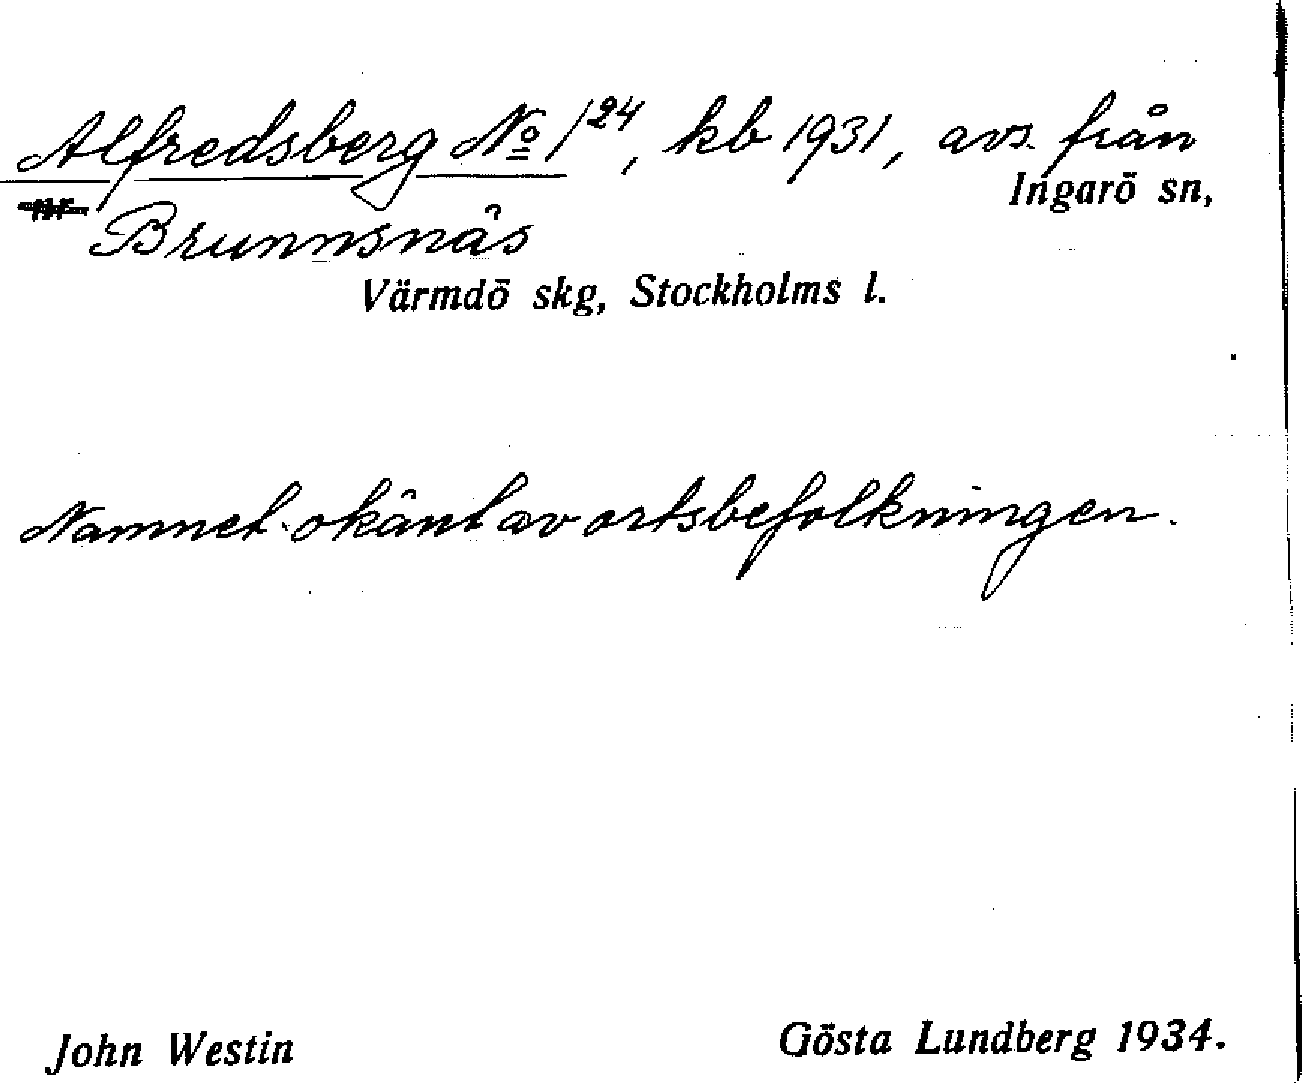 Alfredsberg № 1²⁴, kb 1931, avs. från
Ingarö sn,
Brunnsnäs
Värmdö skg, Stockholms l.
Namnet okänt av ortsbefolkningen.
John Westin
Gösta Lundberg 1934.